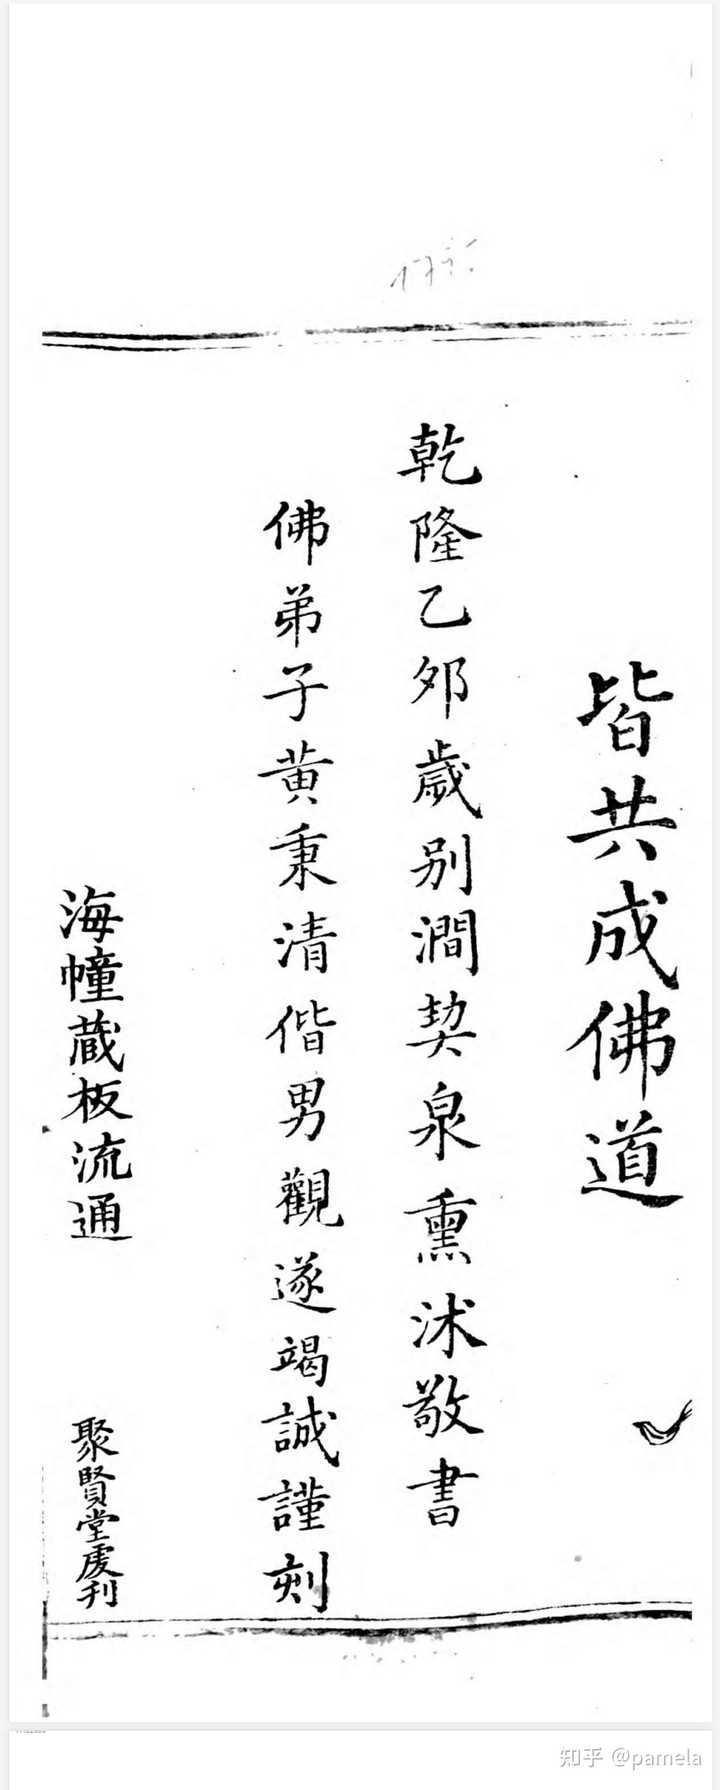 皆共成佛道
乾隆乙夘歲别澗契泉熏沭敬書
佛弟子黄秉清偕男觀遂竭誠謹刻
海幢蔵板流通
聚賢堂䖏刊
知乎 @pamela